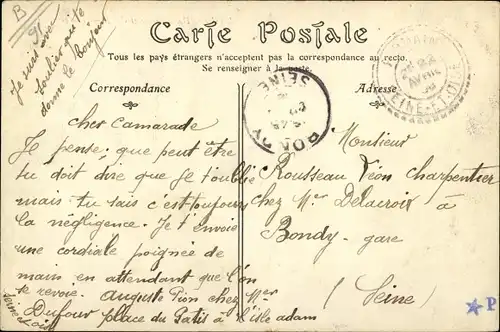 B
Je suis avec
toulier qui te
donne le bonjour
Carte Postale
Tous les pays étrangers n'acceptent pas la correspondance au recto.
Se renseigner à la poste.
Correspondance
Adresse
cher Camarade
Je pense que peut être
tu doit dire que je t'oublie
mais tu sais c'est toujours
la négligence. Je t'envoie
une cordiale poignée de
main en attendant que l'on
te revoie. Auguste Pion chez Mer
Dufour place du Patis à l'isle adam
Seine et oise
Monsieur
Rousseau Léon charpentier
chez Mer Delacroix à
Bondy-gare
(Seine)
BONDY
SEINE
SEINE-ET-OISE
22
AVRIL
P